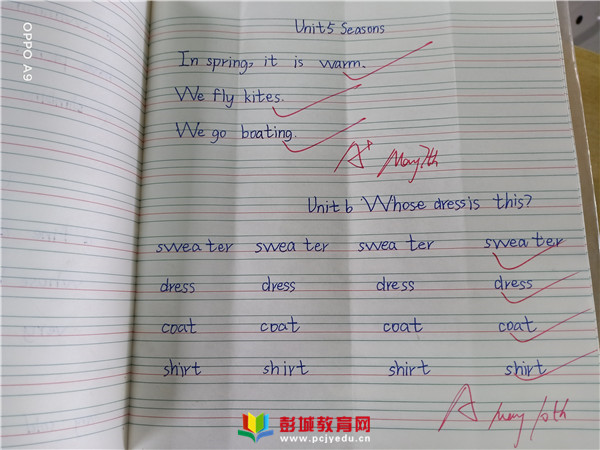 Unit 5 Seasons
In spring, it is warm.
We fly kites.
We go boating.
A+ May 7th
Unit 6 Whose dress is this?
sweater sweater sweater sweater
dress dress dress dress
coat coat coat coat
shirt shirt shirt shirt
A May 10th
OPPO A9
彭城教育网
www.pcjyedu.cn